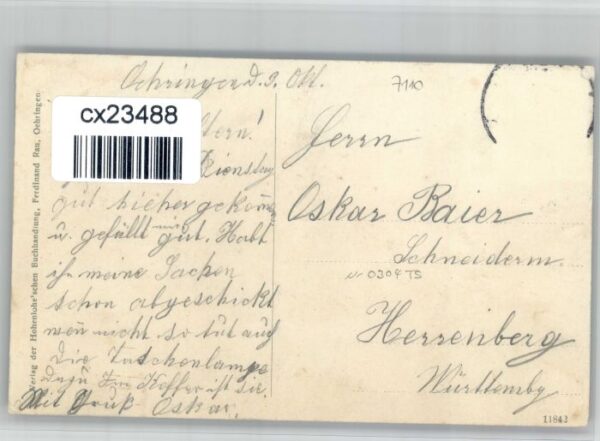 Oehringen d. 9. Okt.
cx23488
tern!
Dienstag
gut hieher gekomen
u. gefällt mir gut. Habt
ihr meine Sachen
schon abgeschickt
wen̄ nicht so tut auch
die Taschenlampe
dazu Im Koffer ist sie.
Mit Gruß Oskar.
7110
Herrn
Oskar Baier
Schneiderm
N 0304 TS
Herrenberg
Württembg
Verlag der Hohenlohe'schen Buchhandlung, Ferdinand Rau, Oehringen
11842